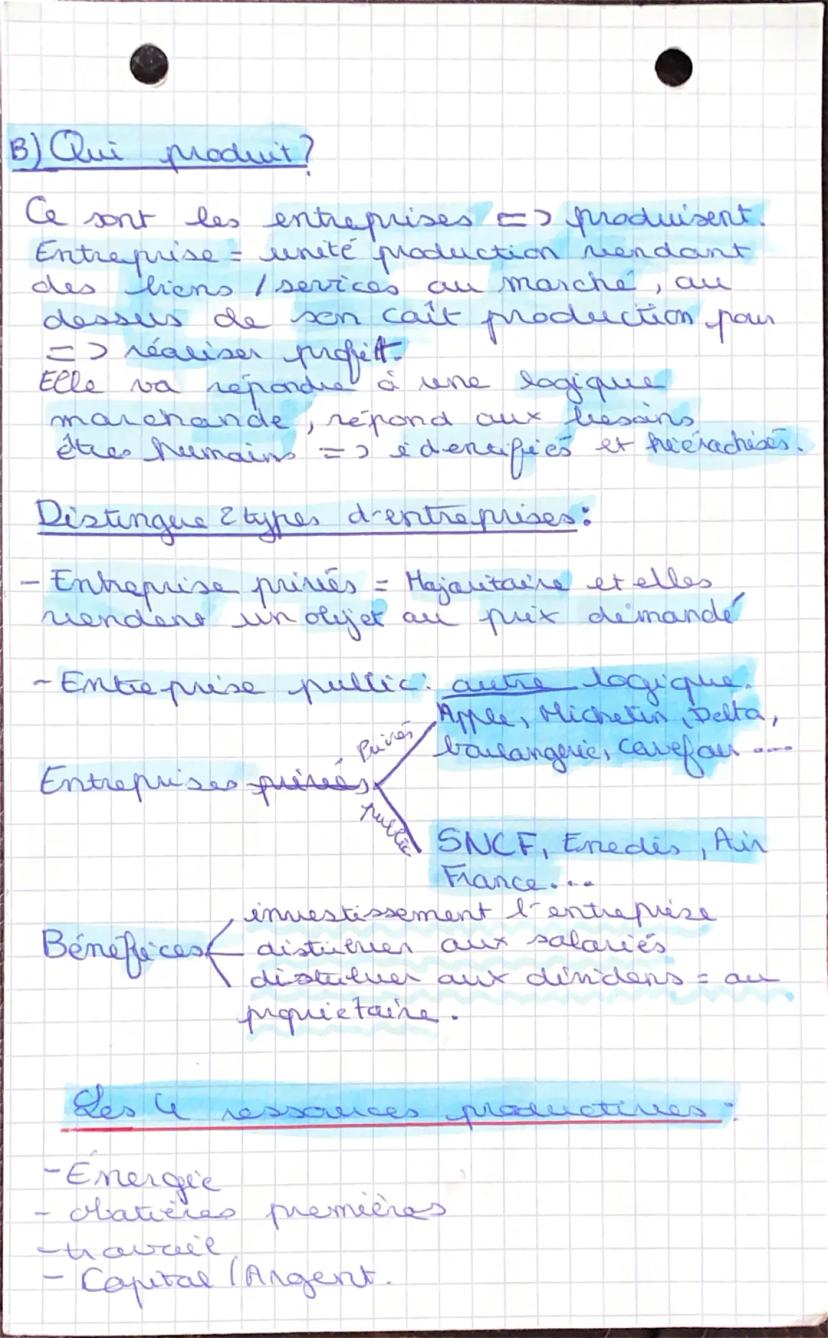 B) Qui produit?
Ce sont les entreprises => produisent.
Entreprise = unité production vendant
des biens / services au marché, au
dessus de son caît production pour
=> réaliser profit.
Elle va répondre à une logique
marchande, répond aux besoins
êtres humains => identifiés et hiérachisés.
Distingue 2 types d'entreprises :
- Entreprise privés = Majoritaire et elles
vendent un objet au prix démandé
- Entreprise public : autre logique.
Apple, Michelin, Delta,
boulangerie, carefour ....
Privés
Entreprises privés
public
SNCF, Enedis, Air
France...
investissement l'entreprise
Bénefices distribuer aux salariés
distribuer aux dividens = au
propriétaire.
Les 4 ressources productives :
- Énergie
- Matières premières
- travail
- Capital / Argent.